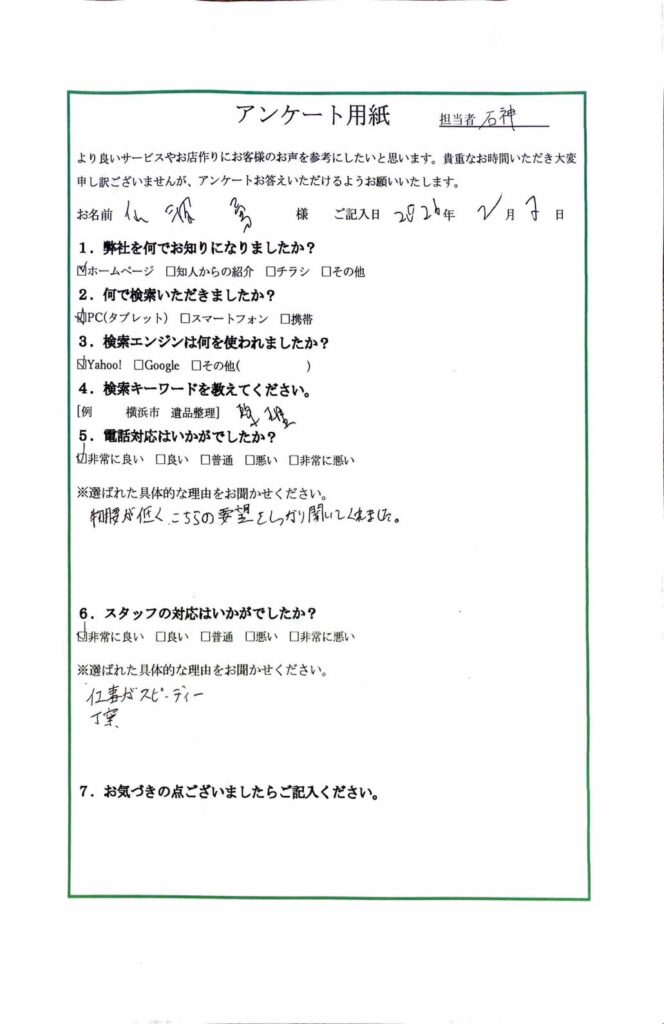 アンケート用紙
担当者 石神
より良いサービスやお店作りにお客様のお声を参考にしたいと思います。貴重なお時間いただき大変
申し訳ございませんが、アンケートお答えいただけるようお願いいたします。
お名前 仙波 様 ご記入日 2026年 2月7日
1．弊社を何でお知りになりましたか？
☑ホームページ □知人からの紹介 □チラシ □その他
2．何で検索いただきましたか？
☑PC(タブレット) □スマートフォン □携帯
3．検索エンジンは何を使われましたか？
☑Yahoo! □Google □その他( )
4．検索キーワードを教えてください。
[例 横浜市 遺品整理]
5．電話対応はいかがでしたか？
☑非常に良い □良い □普通 □悪い □非常に悪い
※選ばれた具体的な理由をお聞かせください。
物腰が低く、こちらの要望をしっかり聞いてくれました。
6．スタッフの対応はいかがでしたか？
☑非常に良い □良い □普通 □悪い □非常に悪い
※選ばれた具体的な理由をお聞かせください。
仕事がスピーディー
丁寧
7．お気づきの点ございましたらご記入ください。